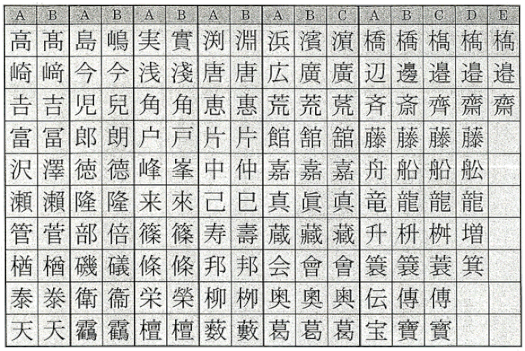 A B A B A B A B A B C A B C D E
高 髙 島 嶋 実 實 渕 淵 浜 濱 濵 橋 橋 槗 槗 槗
崎 﨑 今 今 浅 淺 唐 唐 広 廣 廣 辺 邊 邉 邉 邉
𠮷 吉 児 兒 角 角 恵 惠 荒 荒 荒 斉 斎 齊 齋 齋
富 冨 郎 朗 户 戸 片 片 館 舘 舘 藤 藤 藤 藤
沢 澤 徳 德 峰 峯 中 仲 嘉 嘉 嘉 舟 船 船 舩
瀬 瀨 隆 隆 来 來 己 巳 真 眞 真 竜 龍 龍 龍
管 菅 部 倍 篠 篠 寿 壽 蔵 藏 藏 升 枡 桝 増
楢 楢 磯 礒 條 條 邦 邦 会 會 會 簑 簑 蓑 箕
泰 泰 衛 衞 栄 榮 柳 栁 奥 奥 奧 伝 傳 傳
天 天 靍 靏 檀 檀 薮 藪 葛 葛 葛 宝 寶 寳